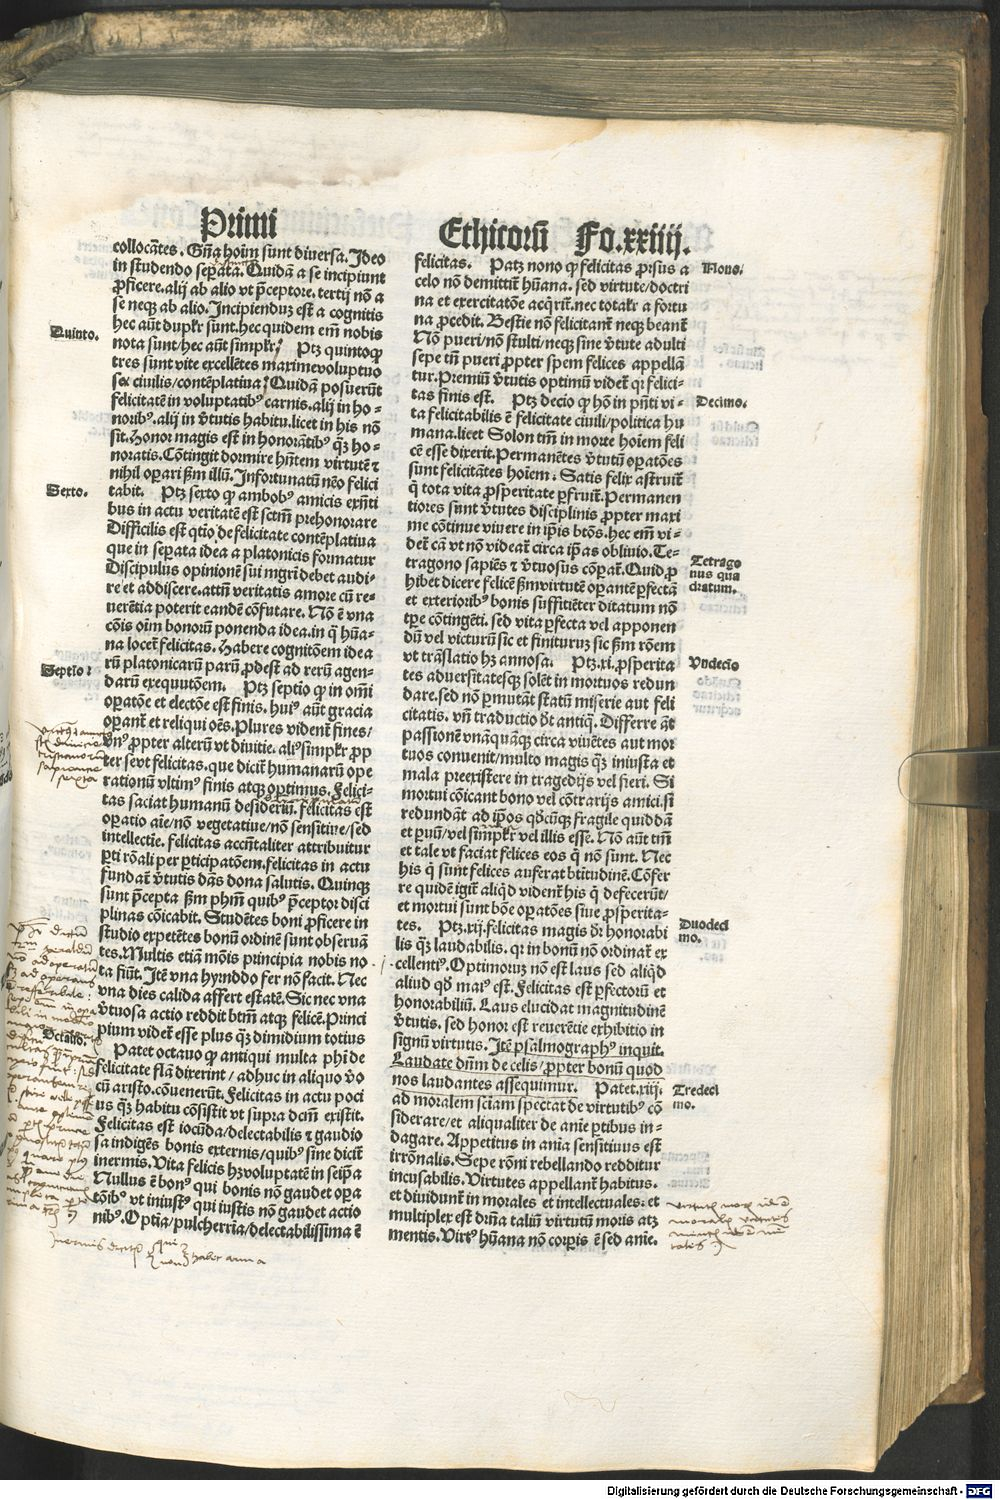 Primi
Ethicorū Fo.xxiiij.
collocātes. Gn̄a hoīm sunt diuersa. Ideo
in studendo seꝑata. Quidā a se incipiunt
ꝓficere. alij ab alio vt p̄ceptore. tertij nō a
se neqꝫ ab alio. Incipienduꝫ est a cognitis
Quinto.
hec aūt duplr̄ sunt. hec quidem em̄ nobis
nota sunt/hec aūt simplr̄/ Ptꝫ quinto ꝙ
tres sunt vite excellētes maxime voluptuo
se: ciuilis/contēplatiua: Quidā posuerūt
felicitatē in voluptatibꝰ carnis. alij in ho-
noribꝰ. alij in v̄tutis habitu. licet in his nō
sit. Honor magis est in honorātibꝰ qꝫ ho-
noratis. Cōtingit dormire hn̄tem virtutē ⁊
nihil oꝑari ẜm illū. Infortunatū nēo felici
Sexto.
tabit. Ptꝫ sexto ꝙ ambobꝰ amicis exn̄ti
bus in actu veritatē est sctm̄ prehonorare
Difficilis est qtīo de felicitate contēplatiua
que in seꝑata idea a platonicis formatur
Discipulus opinionē sui mgr̄i debet audi-
re et addiscere. attn̄ veritatis amore cū re-
uerētia poterit eandē cōfutare. Nō ē vna
cōis oīm bonorū ponenda idea. in q̄ hūa-
na locet̄ felicitas. Habere cognitōem idea
Septīo:
rū platonicarū parū ꝓdest ad rerū agen-
darū exequutōem. Ptꝫ septīo ꝙ in om̄i
oꝑatōe et electōe est finis. huiꝰ aūt gracia
oꝑant̄ et reliqui oēs. Plures vident̄ fines/
vnꝰ ꝓpter alterū vt diuitie. aliꝰ simplr̄ ꝓp
ter se vt felicitas. que dicit̄ humanarū ope
rationū vltimꝰ finis atqꝫ optimus. Felici-
tas saciat humanū desideriū. felicitas est
oꝑatio aīe/nō vegetatiue/nō sensitiue/sed
intellectie. felicitas accn̄taliter attribuitur
ꝑti rōali per ꝑticipatōem. felicitas in actu
fundat̄ v̄tutis dās dona salutis. Quinqꝫ
sunt p̄cepta ẜm phm̄ quibꝰ p̄ceptor disci
plinas cōicabit. Studētes boni ꝓficere in
studio expetētes bonū ordinē sunt obseruā
tes. Multis etiā mōis principia nobis no-
ta fiūt. Itē vna hyrunddo fer nō facit. Nec
vna dies calida affert estatē. Sic nec vna
v̄tuosa actio reddit btm̄ atqꝫ felicē. Princi
pium videt̄ esse plus qꝫ dimidium totius
Octauo.
Patet octauo ꝙ antiqui multa phi de
felicitate flā dixerint/adhuc in aliquo v̄o
cū aristo. cōuenerūt. Felicitas in actu poci
us qꝫ habitu cōsistit vt supra dcm̄ existit.
Felicitas est iocūda/delectabilis ⁊ gaudio
sa indigēs bonis externis/quibꝰ sine dicit̄
inermis. Vita felicis hꝫ voluptatē in seip̄a
Nullus ē bonꝰ qui bonis nō gaudet oꝑa
tōibꝰ vt iniustꝰ qui iustis nō gaudet actio
nibꝰ. Optīa/pulcherrīa/delectabilissima ē
felicitas. Patꝫ nono ꝙ felicitas ꝓrsus a
Nono.
celo nō demittit̄ hūana. sed virtute/doctri
na et exercitatōe acq̄rit̄. nec totalr̄ a fortu
na ꝓcedit. Bestie nō felicitant̄ neqꝫ beant̄
Nō pueri/nō stulti/neqꝫ sine v̄tute adulti
sepe tn̄ pueri ꝓpter spem felices appellā
tur. Premiū v̄tutis optimū videt̄ qꝛ felici-
tas finis est. Ptꝫ decīo ꝙ hō in pn̄ti vi-
Decimo.
ta felicitabilis ē felicitate ciuili/politica hu
mana. licet Solon tm̄ in morte hoīem feli
cē esse dixerit. Permanētes v̄tutū oꝑatōes
sunt felicitātes hoīem: Satis felix astruit̄
q̄ tota vita ꝓsperitate ꝑfruit̄. Permanen
tiores sunt v̄tutes disciplinis ꝓpter maxi
me cōtinue viuere in ip̄is btōs. hec em̄ vi-
det̄ cā vt nō videat̄ circa ip̄as obliuio. Te-
tragono sapiēs ⁊ v̄tuosus cōꝑat̄. Quid ꝓ
Tetrago
nus qua
dratum.
hibet dicere felicē ẜm virtutē oꝑantē ꝑfectā
et exterioribꝰ bonis suffitiēter ditatum nō
tꝑe cōtingēti. sed vita ꝑfecta vel apponen
dū vel victurū sic et finituruꝫ sic ẜm rōem
vt trāslatio hꝫ annosa. Ptꝫ. xi. ꝓsperita
Vndecīo
tes aduersitatesqꝫ solēt in mortuos redun
dare. sed nō ꝑmutāt statū miserie aut feli
citatis. vn̄ traductio d̄t antiq̄. Differre āt
passionē vnāquāqꝫ circa viuētes aut mor
tuos conuenit/multo magis qꝫ iniusta et
mala preexistere in tragedijs vel fieri. Si
mortui cōicant bono vel cōtrarijs amici. si
redundāt ad ip̄os qd̄cūqꝫ fragile quiddā
et ꝑuū/vel simplr̄ vel illis esse. Nō aūt tm̄
et tale vt faciat felices eos q̄ nō sunt. Nec
his q̄ sunt felices auferat btitudinē. Cōfer
re quidē igit̄ aliqd̄ vident̄ his q̄ defecerūt/
et mortui sunt bōe oꝑatōes siue ꝓsperita-
tes. Ptꝫ. xij. felicitas magis d̄r honorabi
Duodeci
mo.
lis qꝫ laudabilis. qꝛ in bonū nō ordinat̄ ex
cellentiꝰ. Optimoruꝫ nō est laus sed aliqd̄
aliud qd̄ maꝰ est. Felicitas est ꝑfectorū et
honorabiliū. Laus elucidat magnitudinē
v̄tutis. sed honor est reuerētie exhibitio in
signū virtutis. Itē psalmographꝰ inquit.
Laudate dn̄m de celis/ꝓpter bonū quod
nos laudantes assequimur. Patet. xiij.
Tredeci
mo.
ad moralem sciam spectat de virtutibꝰ cō
siderare/et aliqualiter de anīe ꝑtibus in-
dagare. Appetitus in anīa sensitiuus est
irrōnalis. Sepe rōni rebellando redditur
incusabilis. Virtutes appellant̄ habitus.
et diuidunt̄ in morales et intellectuales: et
multiplex est dr̄na taliū virtutū moris atqꝫ
mentis. Virtꝰ hūana nō corꝑis ē sed anīe.
Digitalisierung gefördert durch die Deutsche Forschungsgemeinschaft - DFG